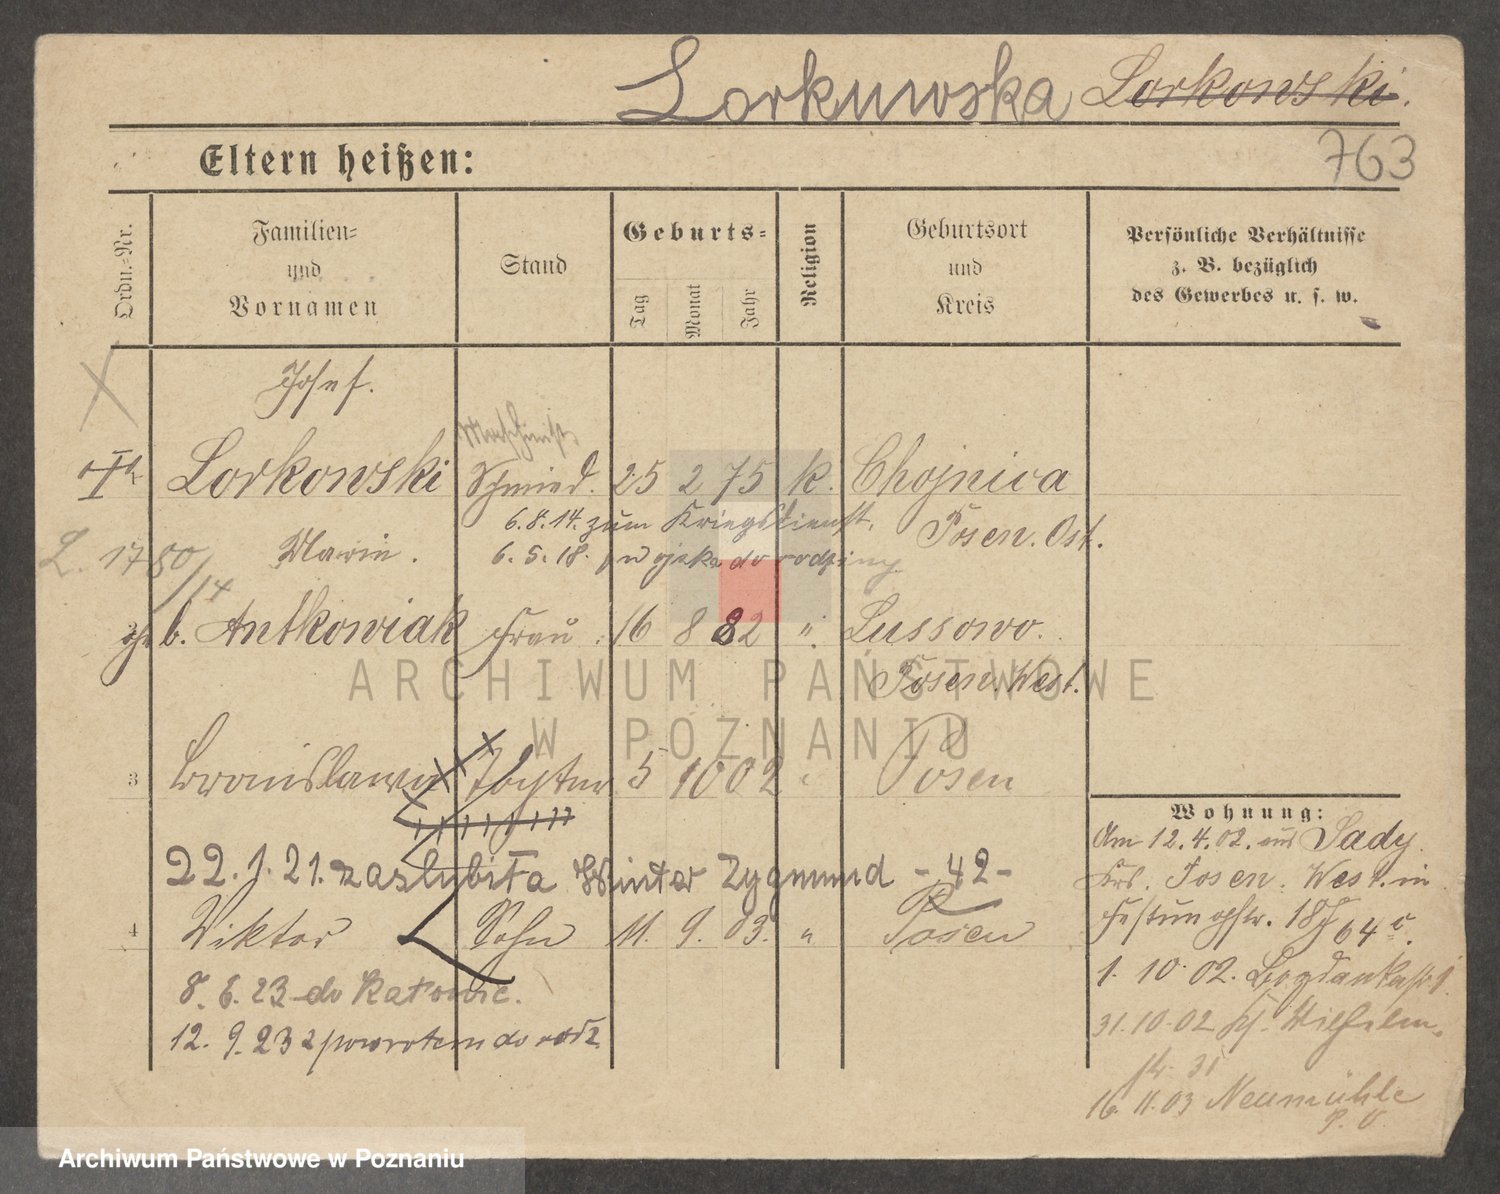 Lorkowska Lorkowski.
763
Eltern heißen:
Ordn.-Nr.
Familien- und Vornamen
Stand
Geburts-
Tag
Monat
Jahr
Religion
Geburtsort und Kreis
Persönliche Verhältnisse z. B. bezüglich des Gewerbes u. s. w.
Josef.
Maschinist
Lorkowski Schmied. 25 2 75 k. Chojnica
6.8.14. zum Kriegsdienst. Posen. Ost.
L. 1780/14 Marie. 6.5.18. z wojska do rodziny
b. Antkowiak Frau 16 8 82 ". Lussowo.
Posen. West.
3 Bronislawa Tochter 5 10 02 " Posen
22. 1. 21. zaslubiła Winter Zygmund - 42 -
4 Viktor Sohn 11. 9. 03. " Posen
8. 6. 23 do Katowic.
12. 9. 23 z powrotem do rodz.
Wohnung:
Am 12.4.02. aus Sady.
Krs. Posen. West. in
Festungstr. 64
1. 10. 02. Bogdankastr 1.
31. 10. 02 Wilhelm-
str. 31
16. 11. 03 Neumühle
P. O.
ARCHIWUM PAŃSTWOWE
W POZNANIU
Archiwum Państwowe w Poznaniu